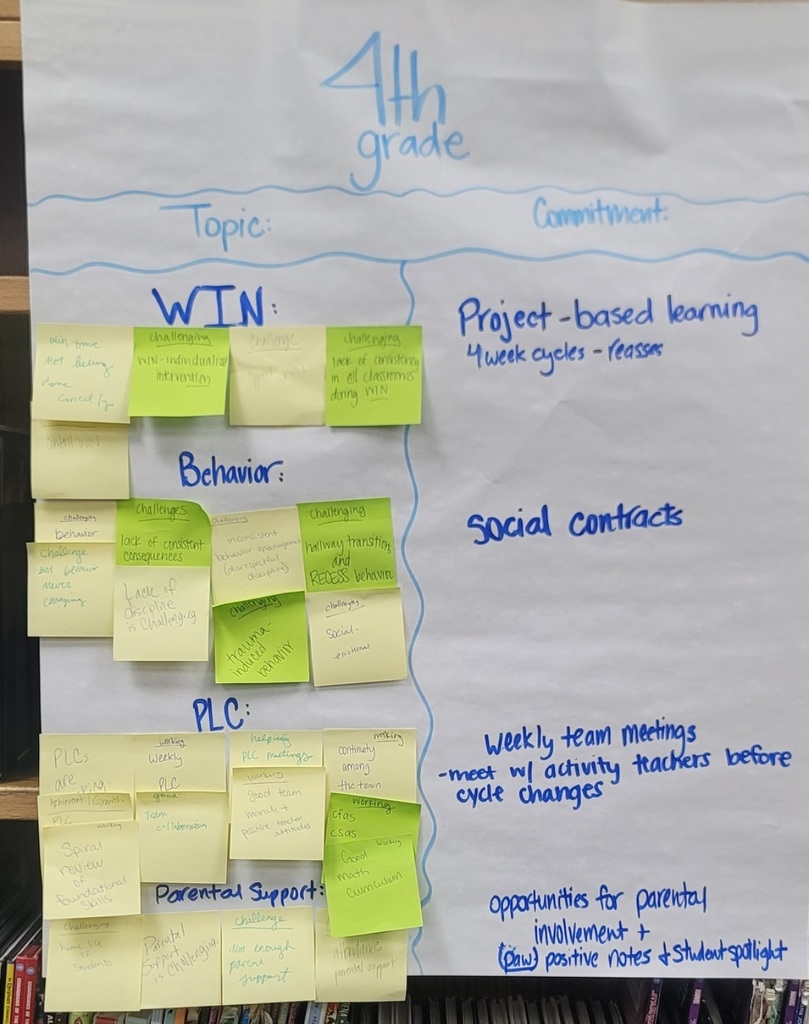 4th
grade
Topic:
Commitment:
WIN:
Project-based learning
4 week cycles - reasses
win time
not being
done
correctly
challenging
WIN-individualized
intervention
Challenge
challenging
lack of consistency
in all classrooms
during WIN
Behavior:
Social contracts
challenging
behavior
Challenges
lack of consistent
consequences
challenging
inconsistent
behavior management
challenging
hallway transitions
and
RECESS behavior
Challenge
behavior
never
changing
Lack of
discipline
is challenging
challenging
trauma-
induced
behavior
challenging
Social-
emotional
PLC:
weekly team meetings
-meet w/ activity teachers before
cycle changes
PLCs
are
working
Weekly
PLC
helping
PLC meetings
working
continuity
among
the team
Achievement/Growth
PLC
good
Team
collaboration
working
good team
morale +
positive teacher
attitudes
working
cfas
csas
working
Spiral
review
of
foundational
skills
working
Good
math
curriculum
Parental Support:
opportunities for parental
involvement +
(paw) positive notes + student spotlight
Challenging
home life
of
students
Parental
Support
is challenging
challenge
-Not enough
parent
support
parental support